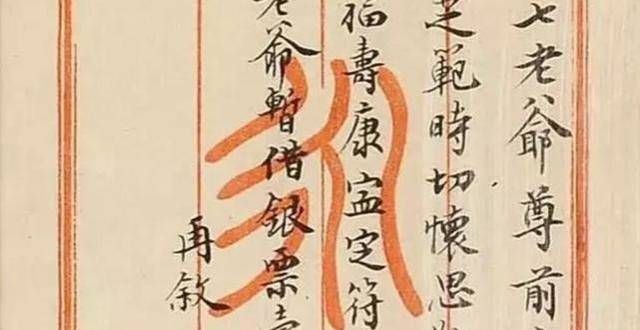 七老爺尊前
芝範時切懷思
福壽康寍定符
老爺暫借銀票壹
再敘